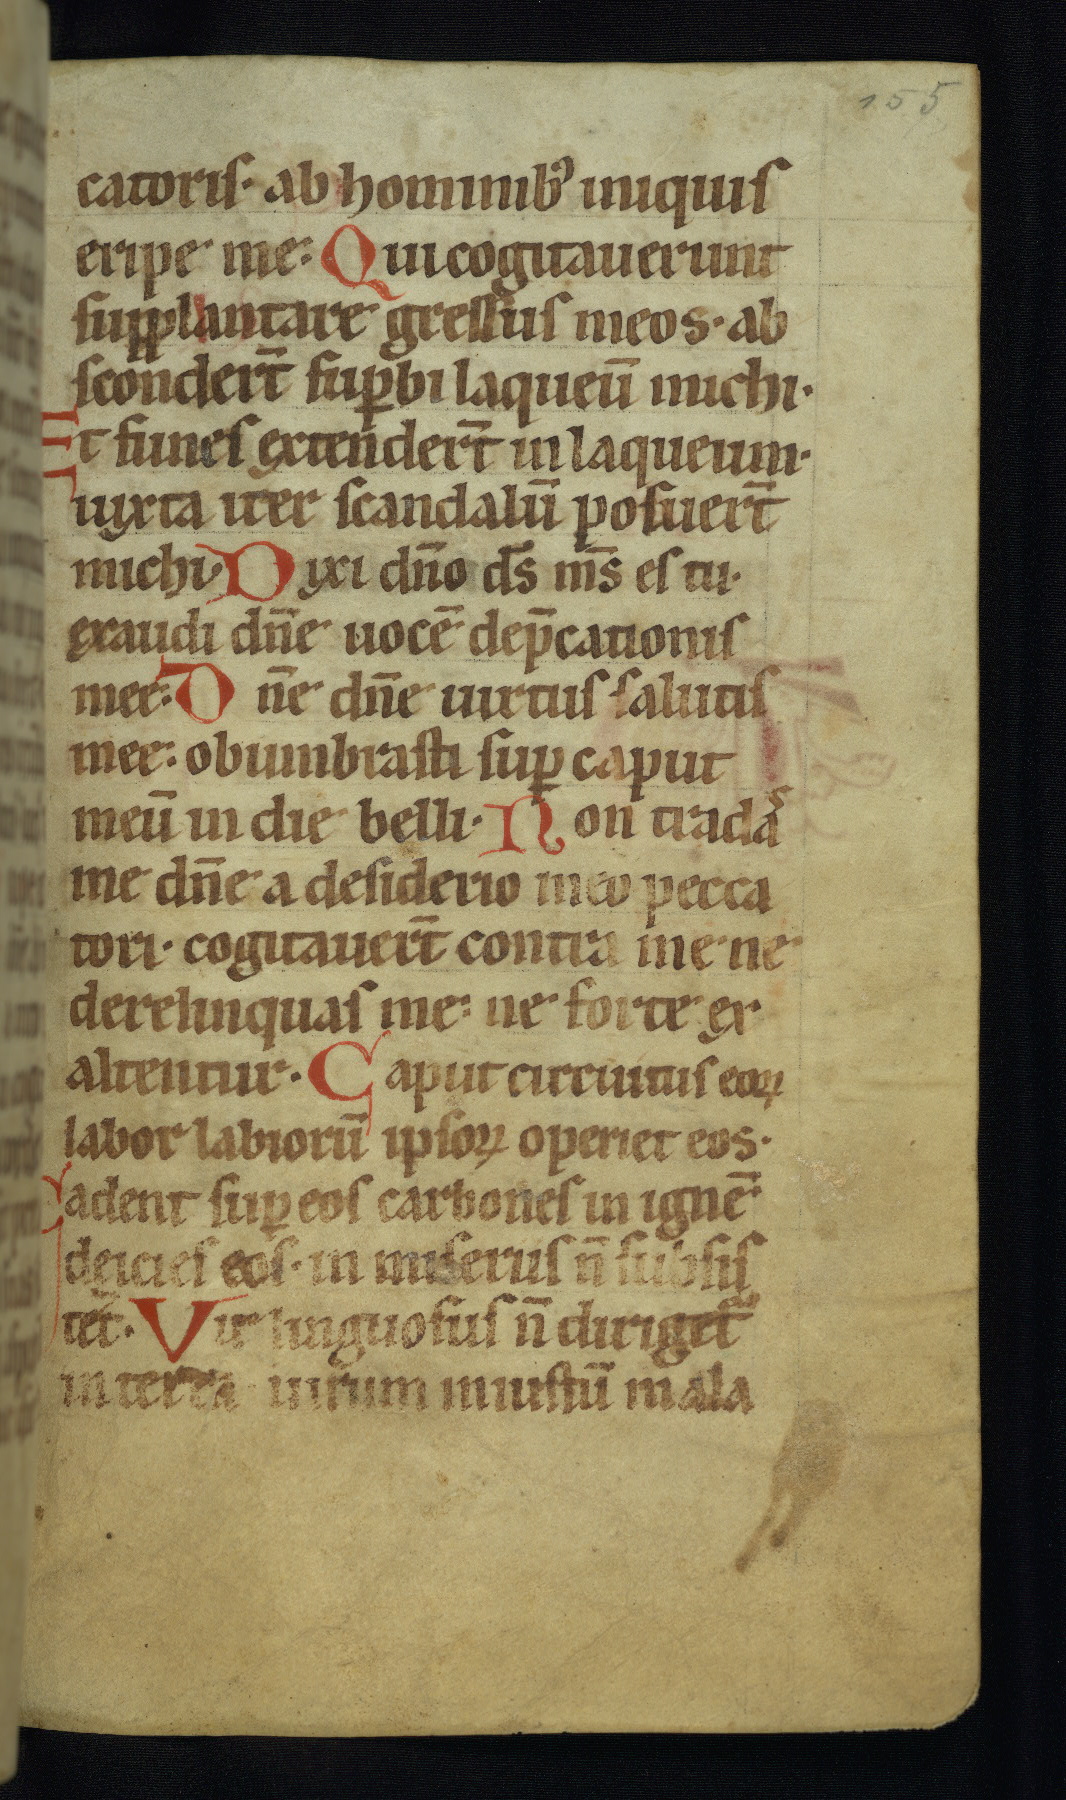 155
catoris· ab hominib⁹ iniquis
eripe me: Qui cogitauerunt
supplantare gressus meos· ab
sconder̄t sup̱bi laqueū michi·
Et funes extender̄t in laqueum·
iuxta iter scandalū posuer̄t
michi· Dixi dn̄o ds̄ ms̄ es tu·
exaudi dn̄e uocē dep̄cationis
mee: Dn̄e dn̄e uirtus salutis
mee: obumbrasti sup̱ caput
meū in die belli· Non tradas
me dn̄e a desiderio meo pecca
tori· cogitauer̄t contra me ne
derelinquas me: ne forte ex
altentur· Caput circuitus eoꝝ
labor labiorū ipsoꝝ operiet eos·
Cadent sup̱ eos carbones in ignē
deicies eos· in miseriis n̄ subsis
tet̄· Vir linguosus n̄ diriget̄
in terra uirum iniustū mala